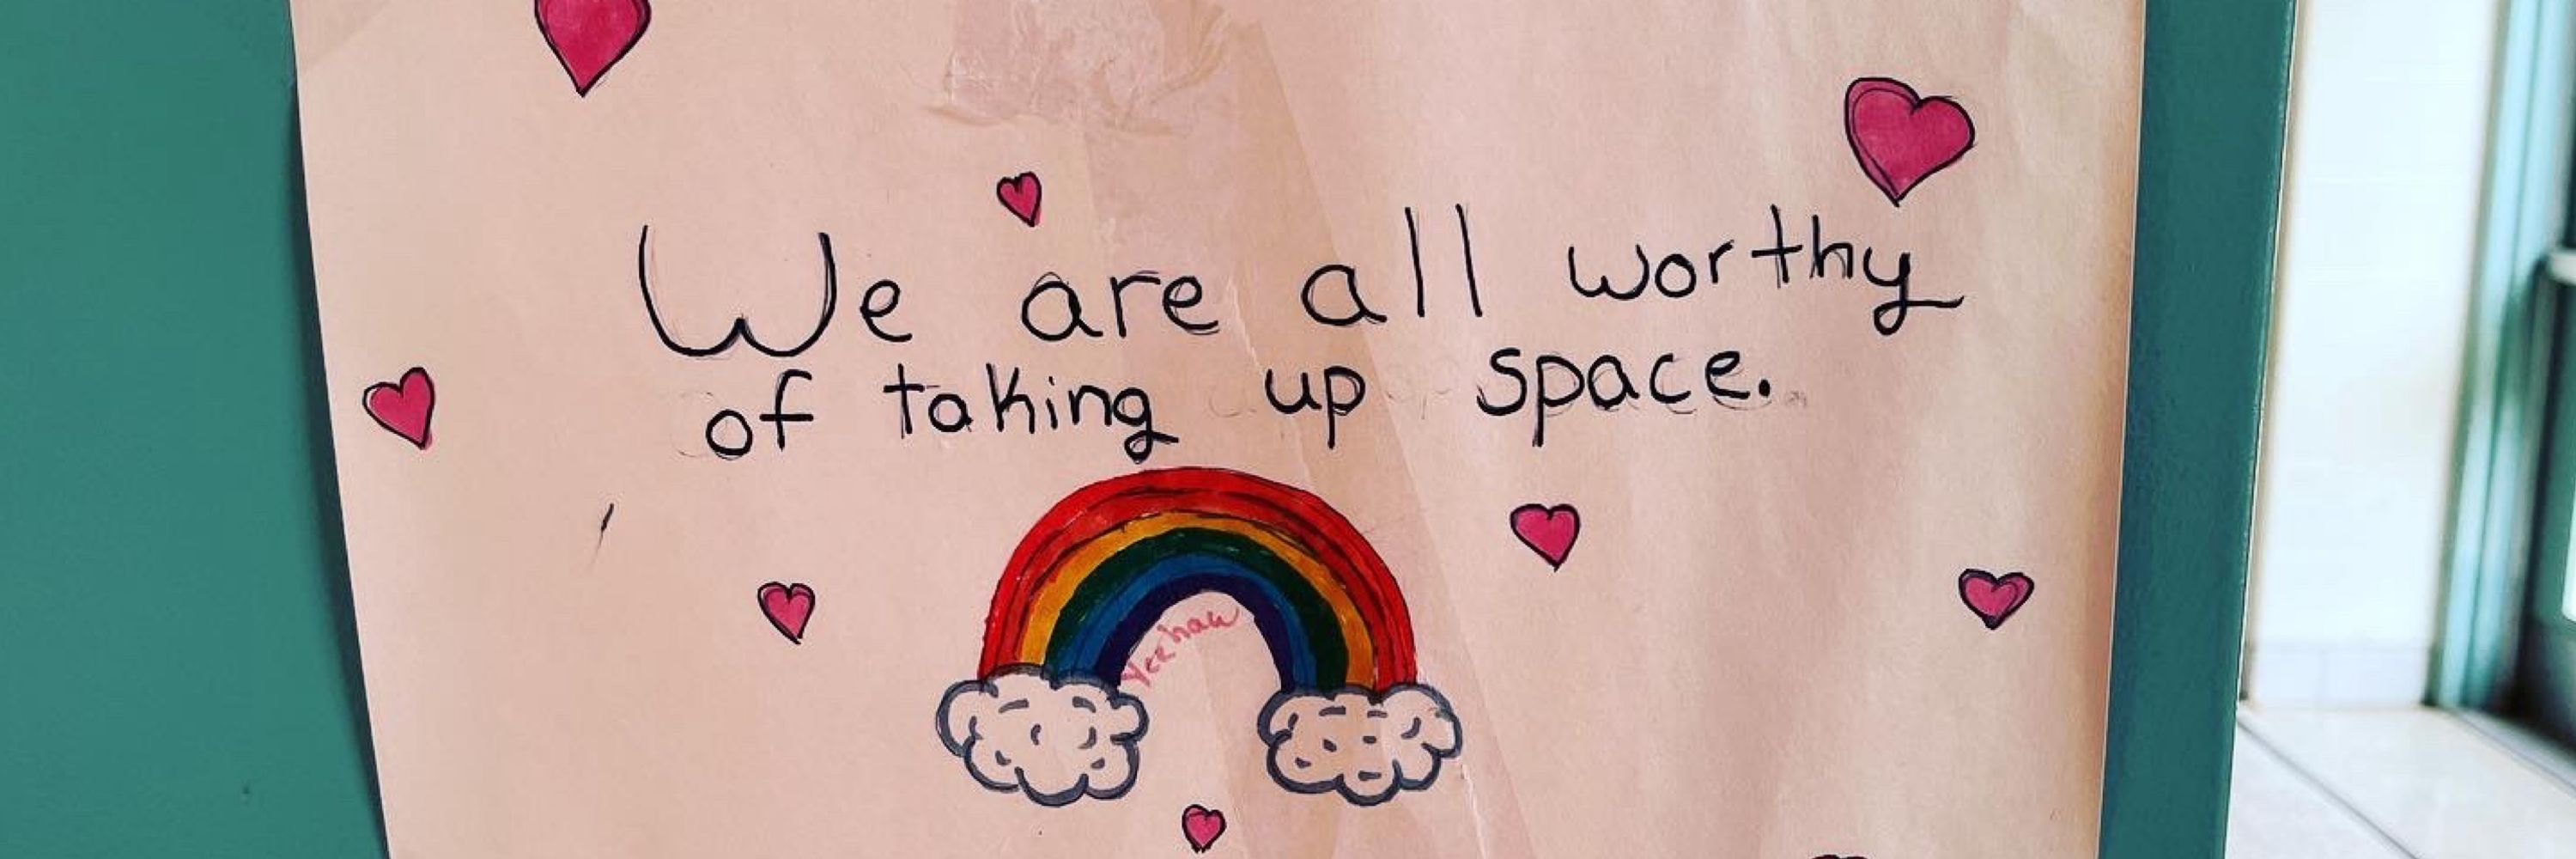 We are all worthy
of taking up space.
Yeehaw